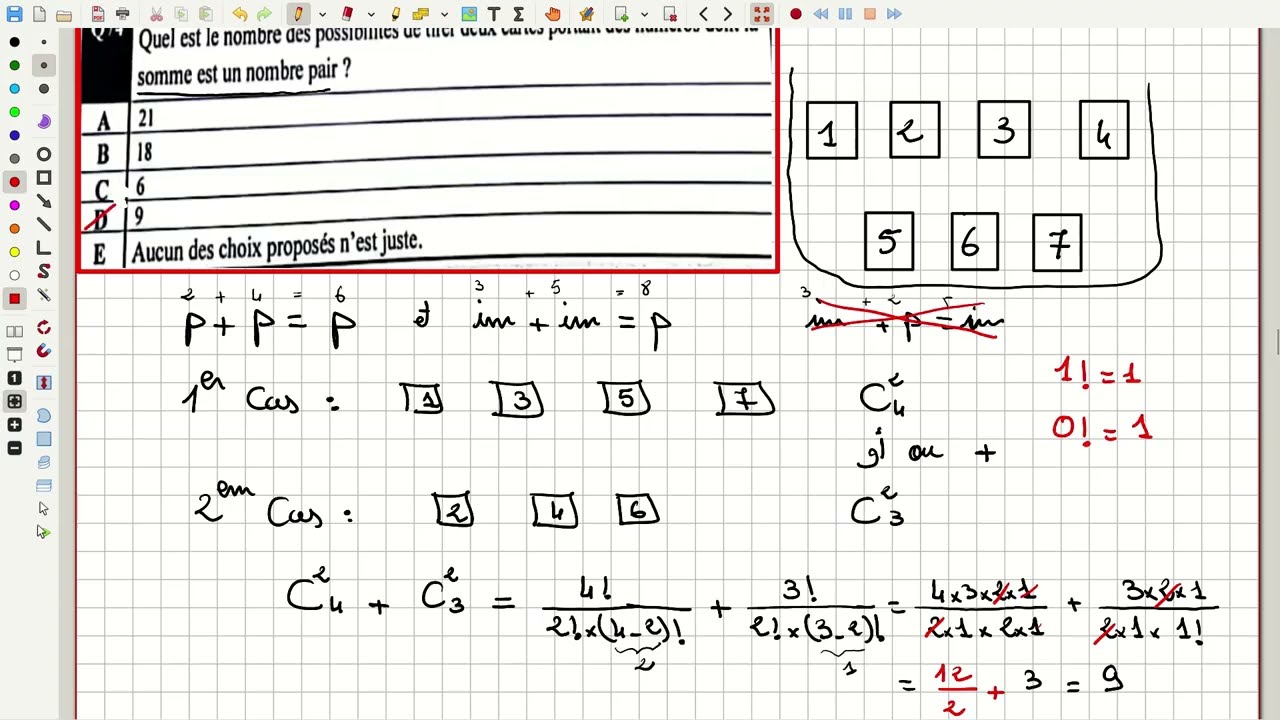 Quel est le nombre des possibilités de tirer deux cartes portant des numéros dont la
somme est un nombre pair ?
A 21
B 18
C 6
D 9
E Aucun des choix proposés n'est juste.
1 2 3 4
5 6 7
2 + 4 = 6 3 + 5 = 8 3 + 2 = 5
p + p = p et im + im = p im + p = im
1er Cas : 1 3 5 7 C₄²
1! = 1
0! = 1
ou +
2em Cas : 2 4 6 C₃²
C₄² + C₃² = 4!/(2!×(4-2)!) + 3!/(2!×(3-2)!) = (4×3×2×1)/(2×1×2×1) + (3×2×1)/(2×1×1!)
2 1
= 12/2 + 3 = 9